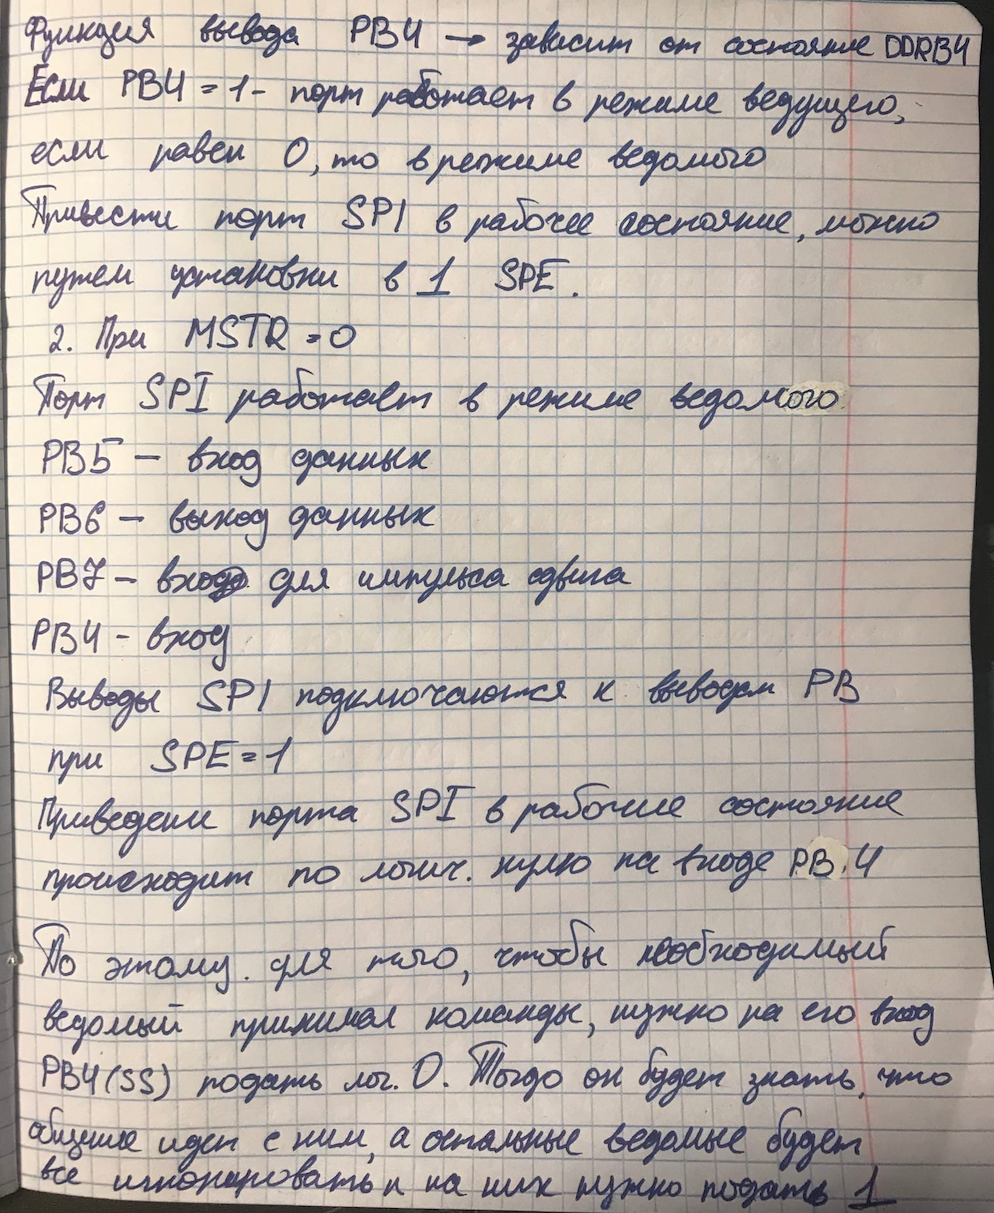 Функция вывода PB4 → зависит от состояние DDRB4
Если PB4 = 1 - порт работает в режиме ведущего,
если равен 0, то в режиме ведомого
Привести порт SPI в рабочее состояние, можно
путем установки в 1 SPE.
2. При MSTR = 0
Порт SPI работает в режиме ведомого
PB5 — вход данных
PB6 — выход данных
PB7 — вход для импульса сдвига
PB4 - вход
Выводы SPI подключаются к выводам PB
при SPE = 1
Приведени порта SPI в рабочие состояние
происходит по логич. нулю на входе PB.4
По этому. для того, чтобы необходимый
ведомый принимал команды, нужно на его вход
PB4(SS) подать лог. 0. Тогдо он будет знать, что
общение идет с ним, а остальные ведомые будет
все игнорировать и на них нужно подать 1